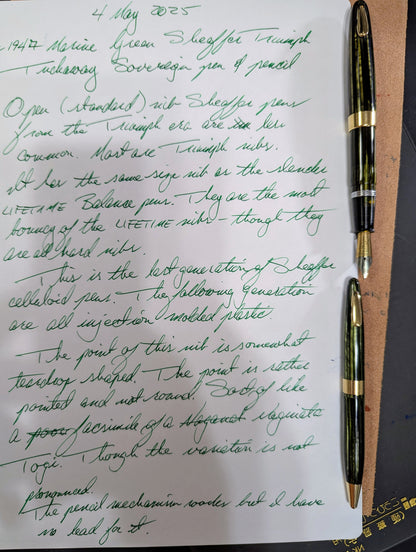 4 May 2025
~1947 Marine Green Sheaffer Triumph
Tuckaway Sovereign pen & pencil
Open (standard) nib Sheaffer pens
from the Triumph era are less
common. Most are Triumph nibs.
It has the same size nib as the slender
LIFETIME Balance pens. They are the most
bouncy of the LIFETIME nibs - though they
are all hard nibs.
This is the last generation of Sheaffer
celluloid pens. The following generation
are all injection molded plastic
The point of this nib is somewhat
teardrop shaped. The point is rather
pointed and not round. Sort of like
a facsimile of a Naginata
Togi. Though the variation is not
pronounced.
The pencil mechanism works but I have
no lead for it.